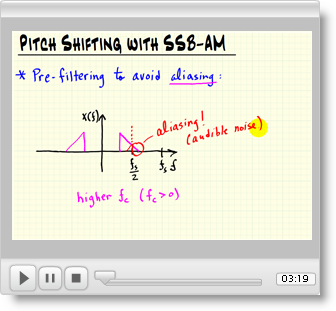 PITCH SHIFTING WITH SSB-AM
* Pre-filtering to avoid aliasing:
X(f)
aliasing!
(audible noise)
fs/2
fs
f
higher fc (fc>0)
03:19